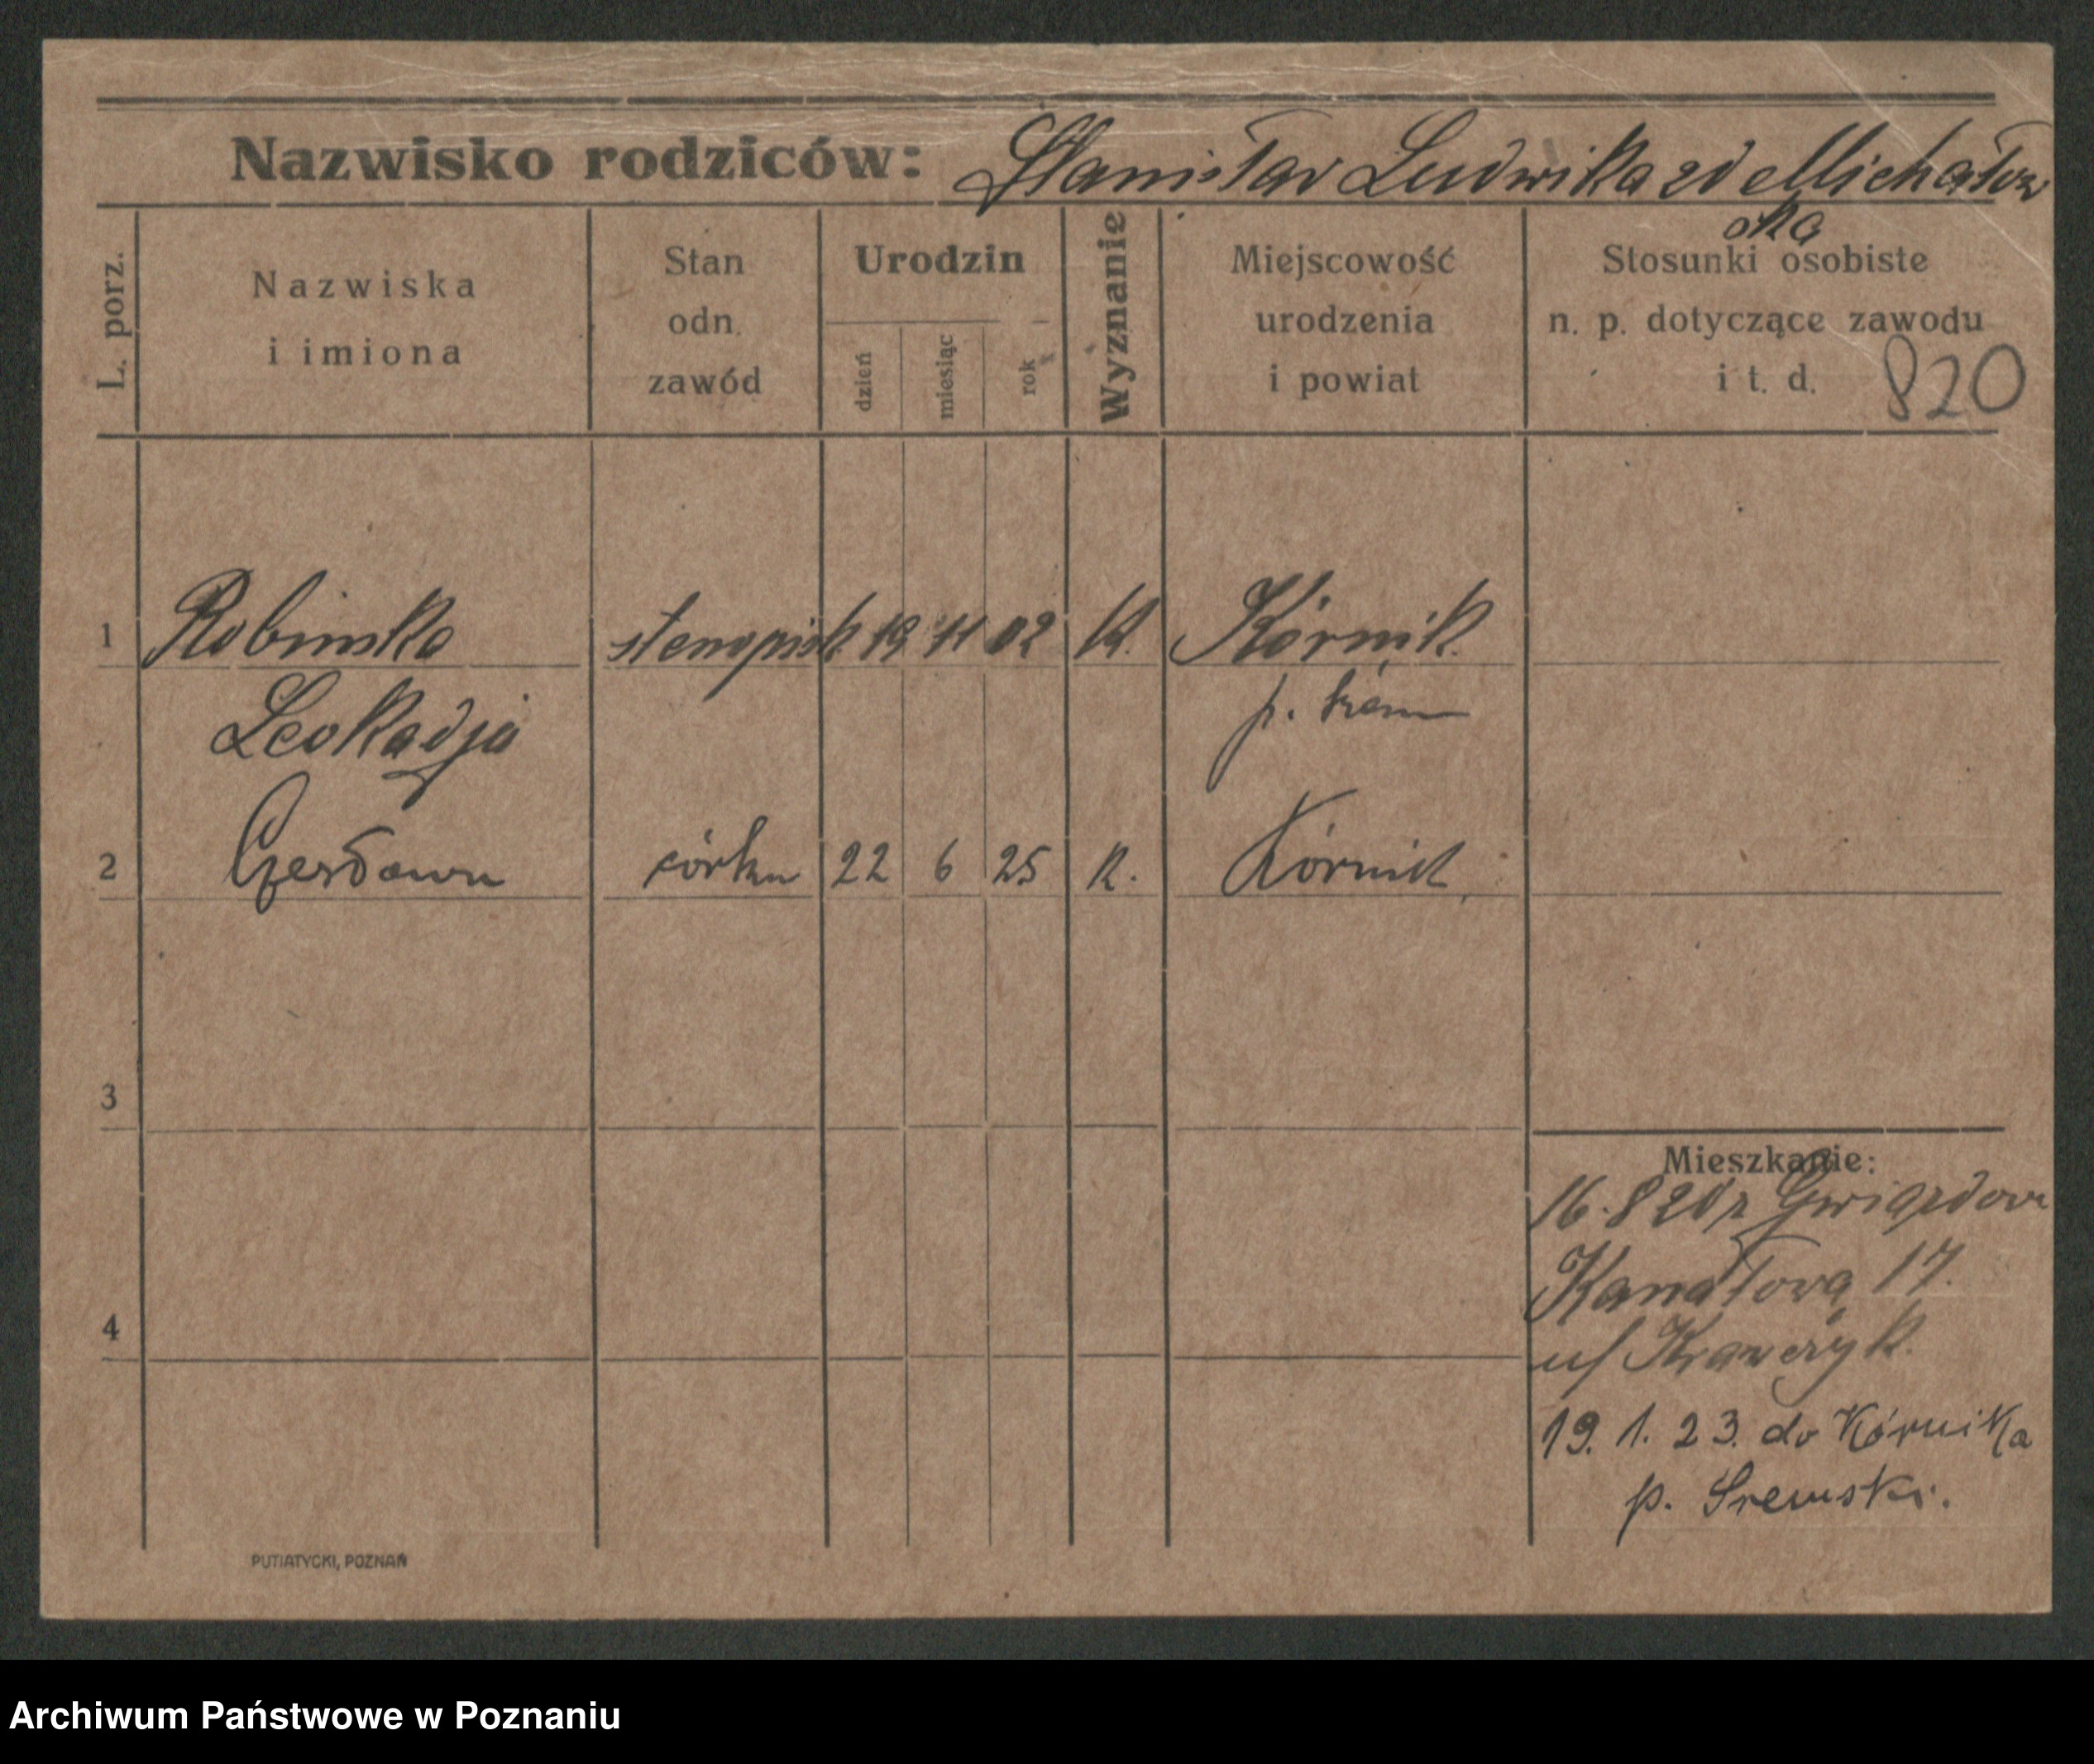 Nazwisko rodziców: Stanisław Ludwika zd Michałow
ska
L. porz.
Nazwiska
i imiona
Stan
odn.
zawód
Urodzin
dzień
miesiąc
rok
Wyznanie
Miejscowość
urodzenia
i powiat
Stosunki osobiste
n. p. dotyczące zawodu
i t. d.
820
1 Robinska stenopist. 19 11 02 K. Kórnik
Leokadja p.
2 Czesława córka 22 6 25 K. Kórnik
3
4
Mieszkanie:
16.8 20 z Gwiazdowa
Kanałowa 17.
u/ Krawczyk.
19. 1. 23. do Kórnika
p. Śremski.
PUTIATYCKI, POZNAŃ
Archiwum Państwowe w Poznaniu